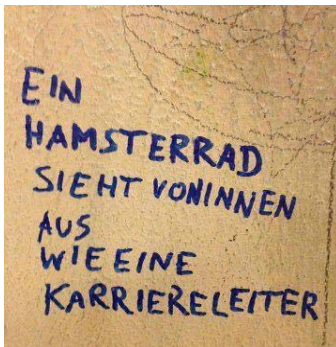 EIN
HAMSTERRAD
SIEHT VONINNEN
AUS
WIE EINE
KARRIERELEITER